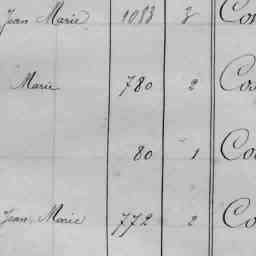 Jean Marie 1083 3 Co
Marie 780 2 Cos
80 1 Co
Jean Marie 772 2 Co